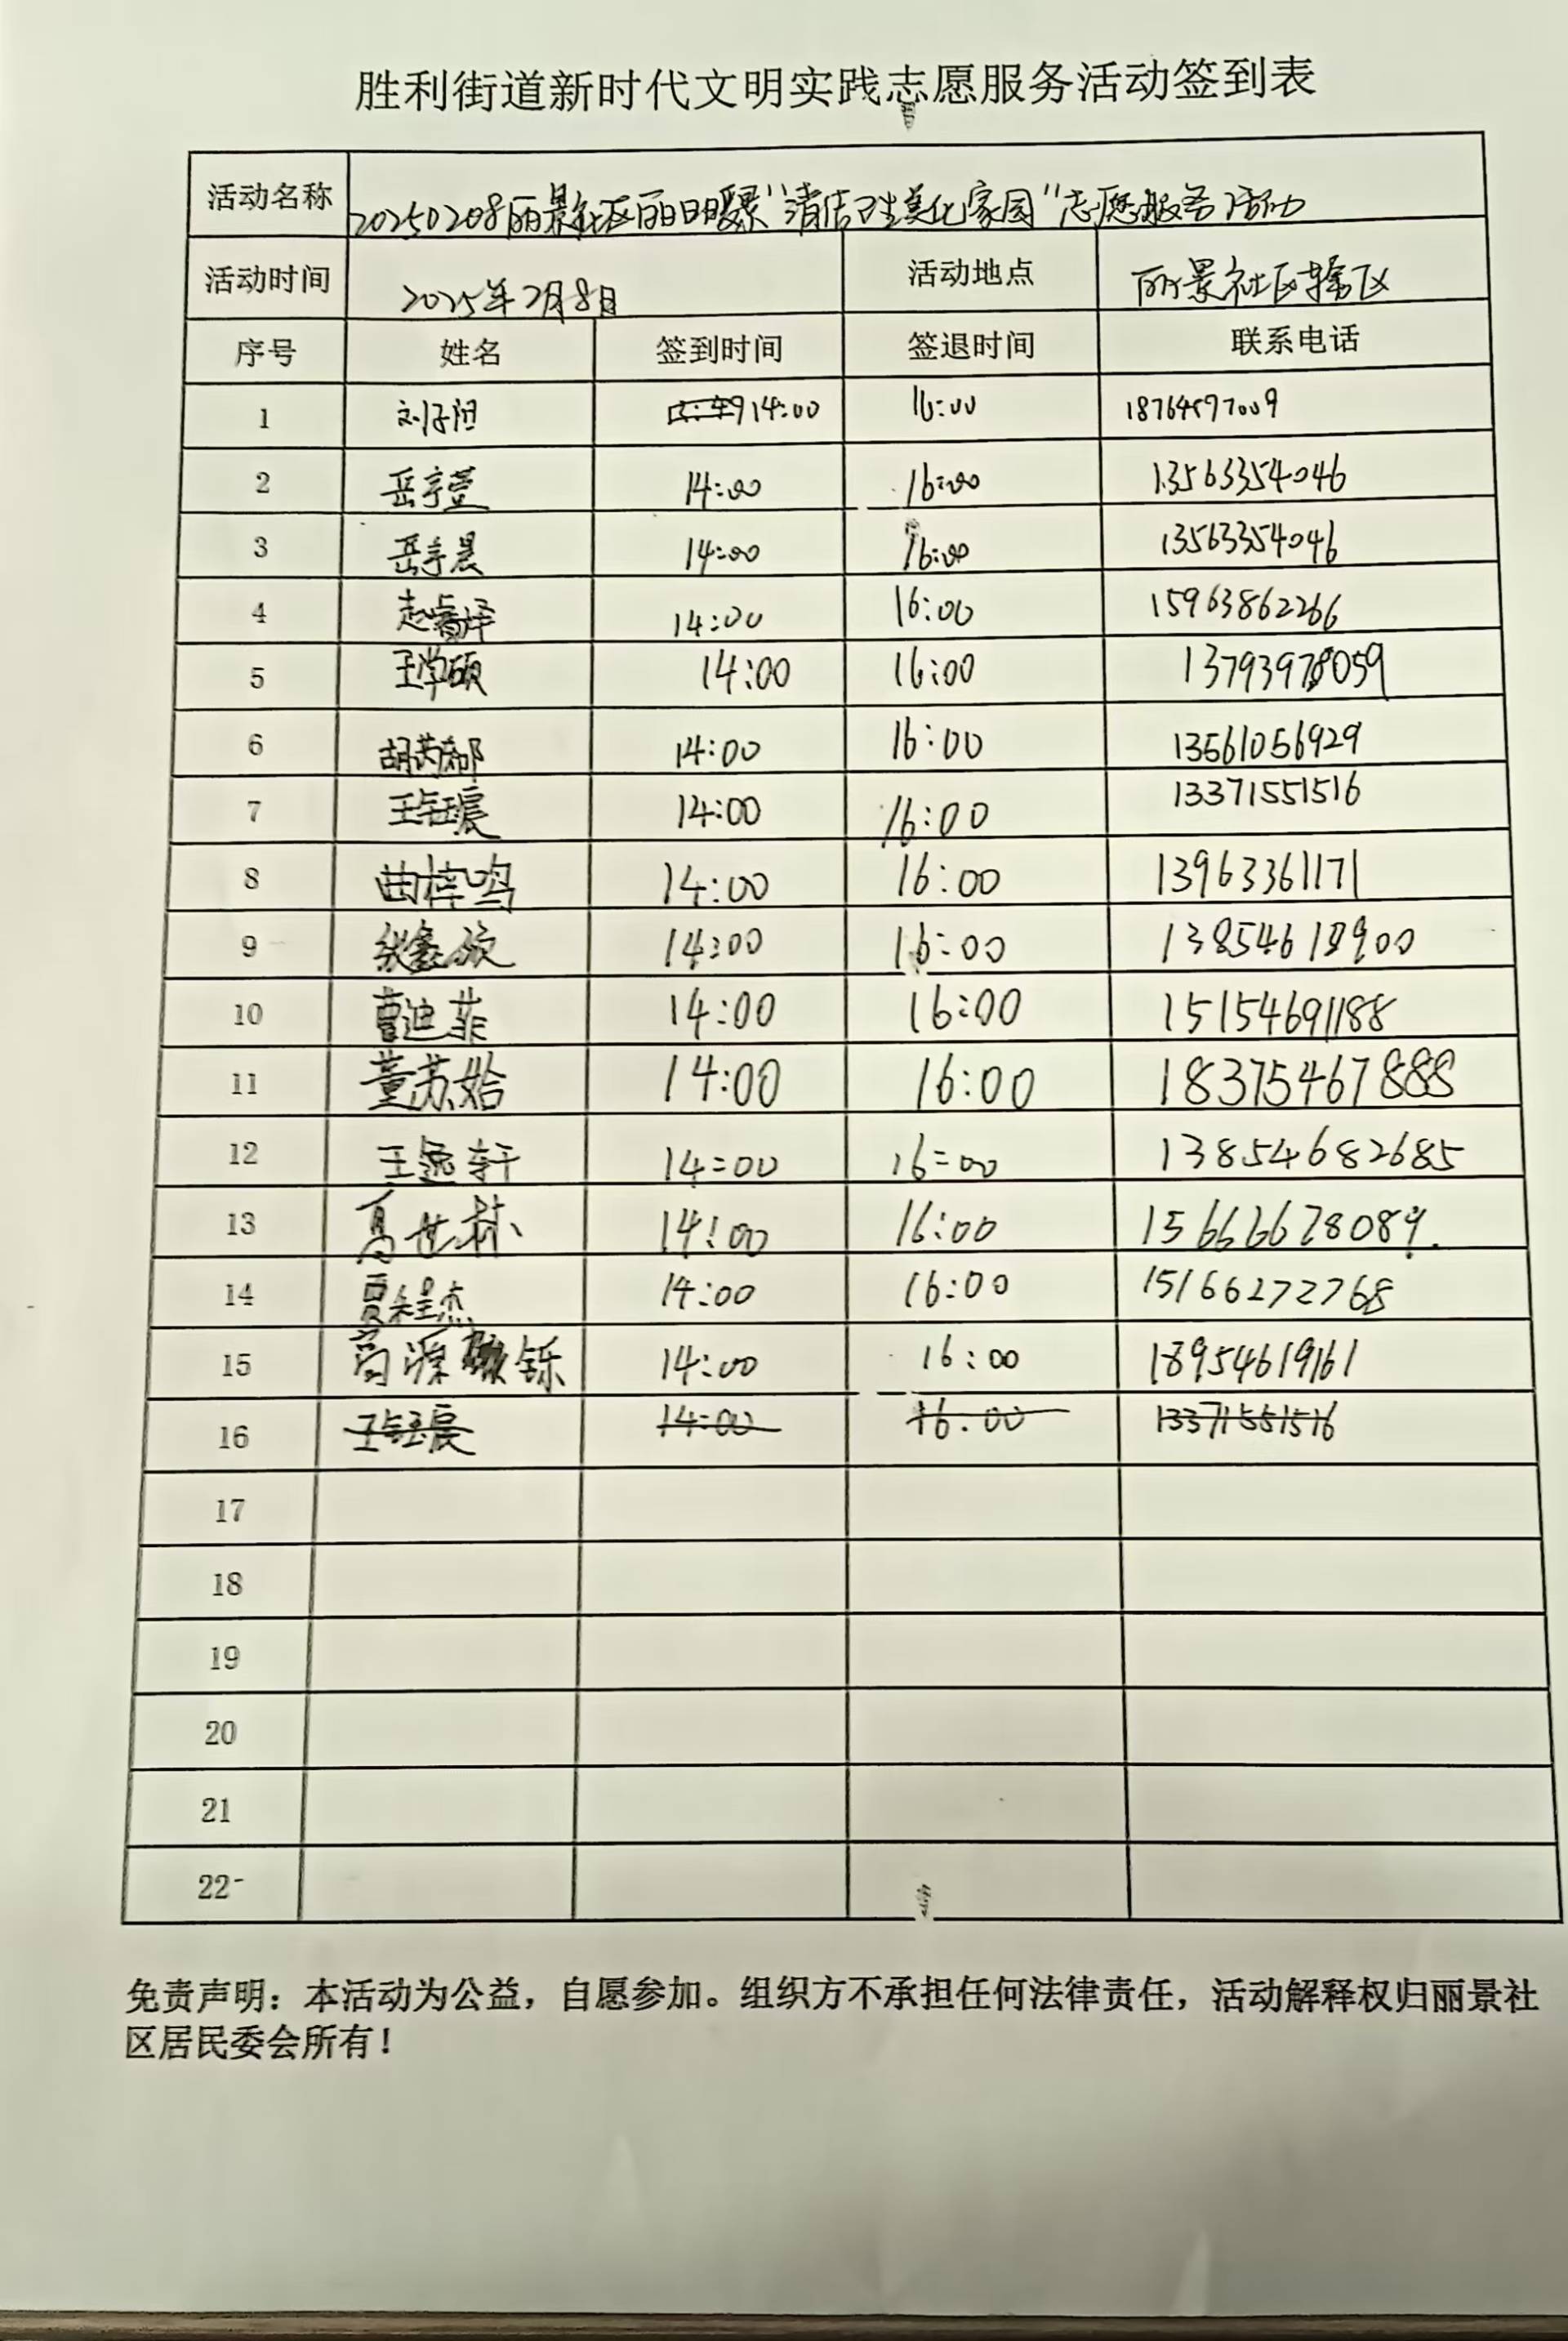 胜利街道新时代文明实践志愿服务活动签到表
活动名称 20250208丽景社区丽日暖景"清洁卫生美化家园"志愿服务活动
活动时间 2025年2月8日 活动地点 丽景社区辖区
序号 姓名 签到时间 签退时间 联系电话
1 刘子阳 14:00 16:00 18764597009
2 岳宇萱 14:00 16:00 13563354046
3 岳宇晨 14:00 16:00 13563354046
4 赵睿泽 14:00 16:00 15963862266
5 王学硕 14:00 16:00 13793978059
6 胡 14:00 16:00 13561056929
7 王钰宸 14:00 16:00 13371551516
8 曲梓鸣 14:00 16:00 13963361171
9 张鑫 14:00 16:00
10 曹迪菲 14:00 16:00 15154691188
11 董苏姶 14:00 16:00 18375467888
12 王逸轩 14:00 16:00 13854682685
13 高世林 14:00 16:00 15666678089.
14 贾程杰 14:00 16:00 15166272768
15 高源铄 14:00 16:00 18954619161
16 王钰宸 14:00 16:00 13371551516
17
18
19
20
21
22
免责声明：本活动为公益，自愿参加。组织方不承担任何法律责任，活动解释权归丽景社
区居民委会所有！